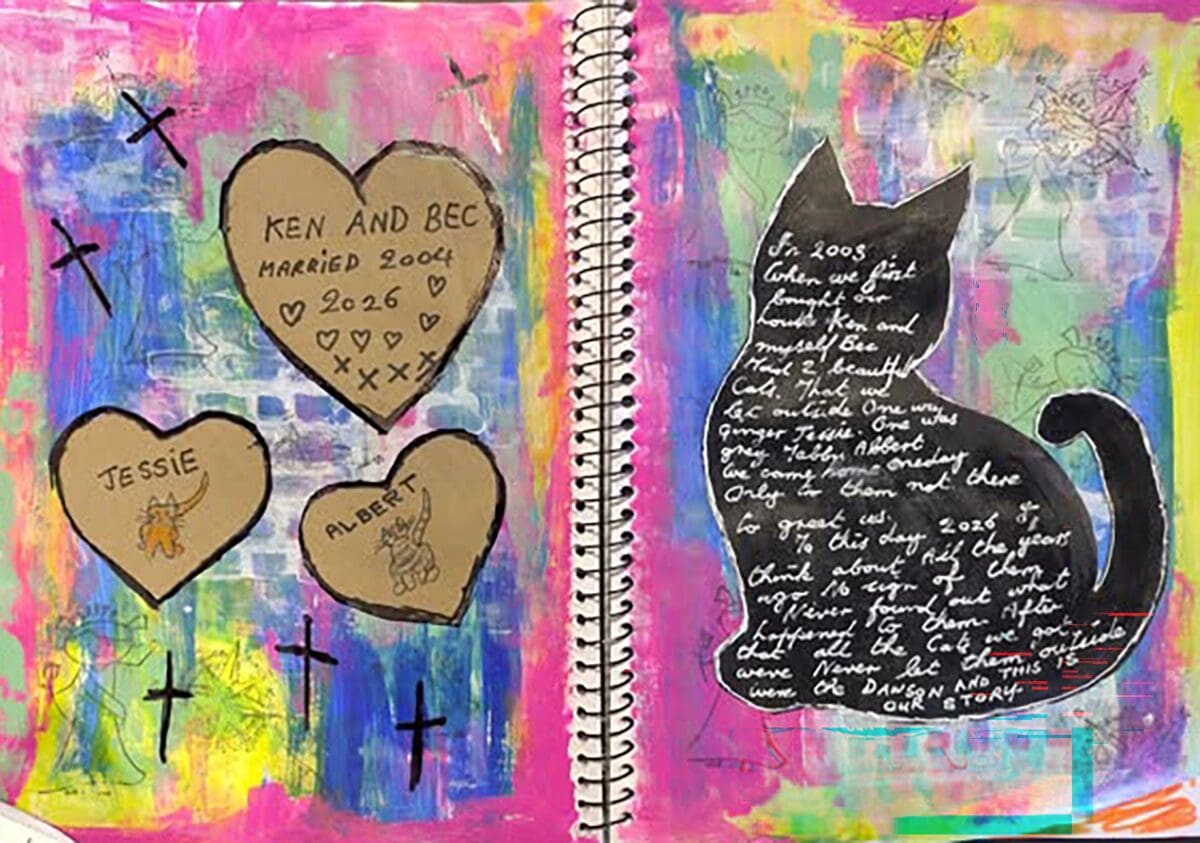 KEN AND BEC
MARRIED 2004
2026
X X X X
JESSIE
ALBERT
In 2003
When we first
bought our
house Ken and
myself Bec
Had 2 beautiful
Cats. That we
let outside One was
ginger Jessie. One was
grey Tabby Albert
We came home oneday
Only to them not there
to greet us.
To this day 2026 I
think about All the years
ago No sign of them
Never found out what
happened to them. After
that all the Cats we got
were Never let them outside
were the DAWSON AND THIS IS
OUR STORY.